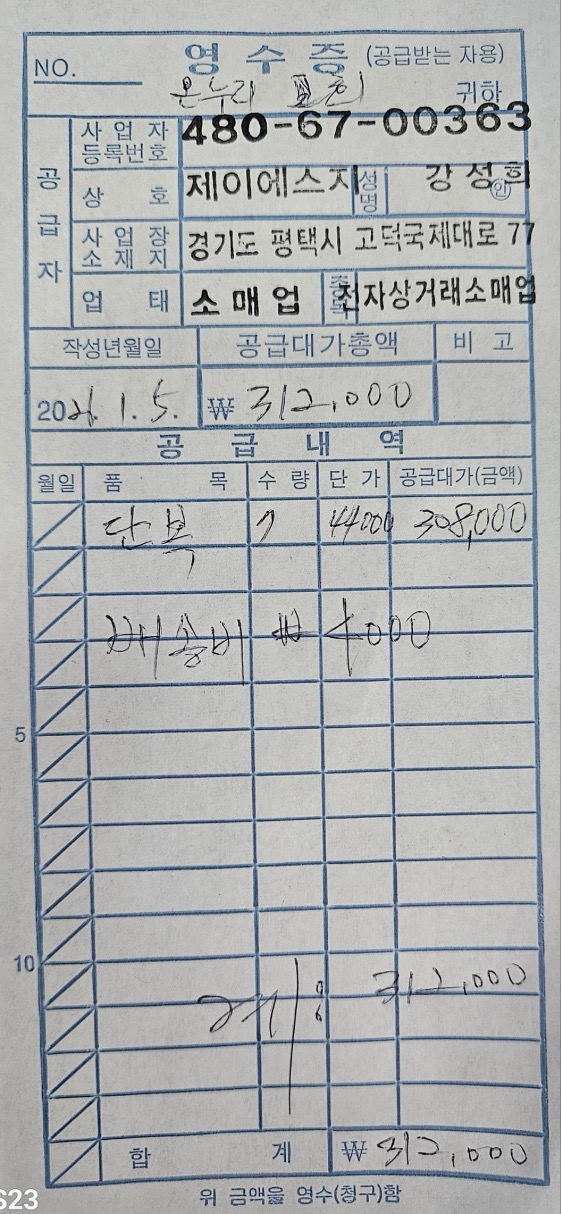 영 수 증 (공급받는 자용)
NO.
온누리 귀하
공급자
사업자등록번호 480-67-00363
상 호 제이에스지 성명 강성희 인
사업장소재지 경기도 평택시 고덕국제대로 77
업 태 소매업 종목 전자상거래소매업
작성년월일 공급대가총액 비 고
202 1. 5. ₩ 312,000
공 급 내 역
월일 품 목 수 량 단 가 공급대가(금액)
단복 7 44000 308,000
배송비 ₩ 4000
5
10
계 : 312,000
합 계 ₩ 312,000
위 금액을 영수(청구)함
S23